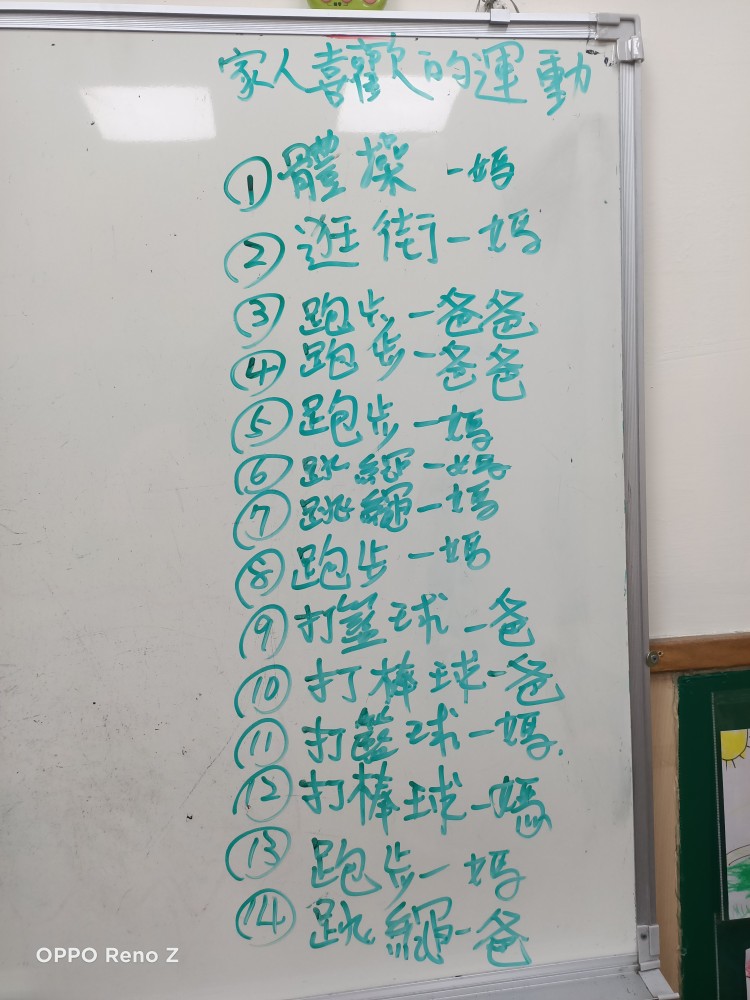 家人喜歡的運動
①體操-媽
②逛街-媽
③跑步-爸爸
④跑步-爸爸
⑤跑步-媽
⑥跳繩-媽
⑦跳繩-媽
⑧跑步-媽
⑨打籃球-爸
⑩打棒球-爸
⑪打籃球-媽.
⑫打棒球-媽
⑬跑步-媽
⑭跳繩-爸
OPPO Reno Z